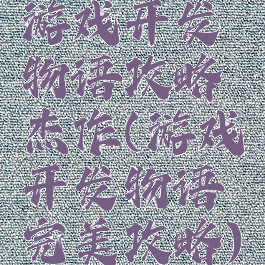 游戏开发
物语攻略
杰作(游戏
开发物语
完美攻略)